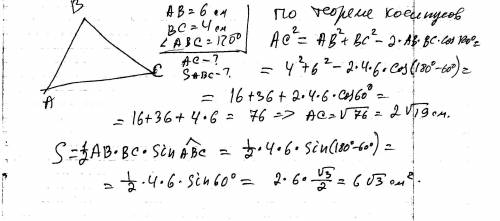 B
A
C
AB = 6 см
BC = 4 см
∠ABC = 120°
AC - ?
S ABC - ?
По теореме косинусов
AC² = AB² + BC² - 2·AB·BC·cos 120° =
= 4² + 6² - 2·4·6·cos(180° - 60°) =
= 16 + 36 + 2·4·6·cos 60° =
= 16 + 36 + 4·6 = 76 => AC = √76 = 2√19 см.
S = ½ AB·BC·Sin ABC = ½·4·6·sin(180° - 60°) =
= ½·4·6·sin 60° = 2·6·√3/2 = 6√3 см².